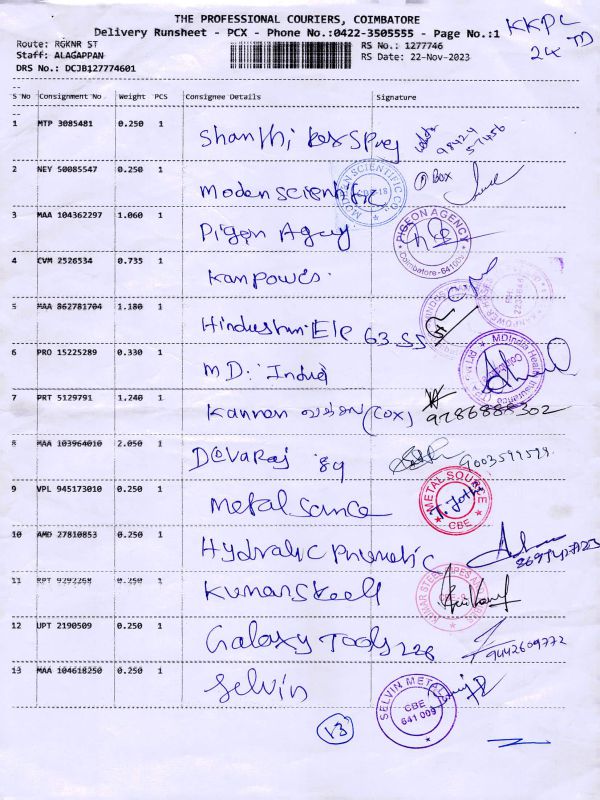 THE PROFESSIONAL COURIERS, COIMBATORE
Delivery Runsheet - PCX - Phone No.:0422-3505555 - Page No.:1
KKPC
Route: RGKNR ST
RS No.: 1277746
24 TD
Staff: ALAGAPPAN
RS Date: 22-Nov-2023
DRS No.: DCJB127774601
S No Consignment No Weight PCS Consignee Details Signature
1 MTP 3085481 0.250 1
Shanthi
98424
57456
2 NEY 50085547 0.250 1
Moden scientific
Box
3 MAA 104362297 1.060 1
Pigen Agency
PIGEON AGENCY
Coimbatore-641009
4 CVM 2526534 0.735 1
Kanpowes
5 MAA 862781704 1.180 1
Hindustan Ele 63 SS
6 PRO 15225289 0.330 1
M D. India
MDIndia Health Insurance
7 PRT 5129791 1.240 1
Kannan (COX)
9786888302
8 MAA 103964010 2.050 1
Devaraj 89
9003599599
9 VPL 945173010 0.250 1
Metal Source
METAL SOURCE
T. Jothi
CBE
10 AMD 27810853 0.250 1
Hydralic Pnematic
11 RPT 9292268 0.250 1
Kumar Steell
12 UPT 2190509 0.250 1
Galaxy Tools 228
9442609772
13 MAA 104618250 0.250 1
Selvin
SELVIN METAL
CBE
641 009
13